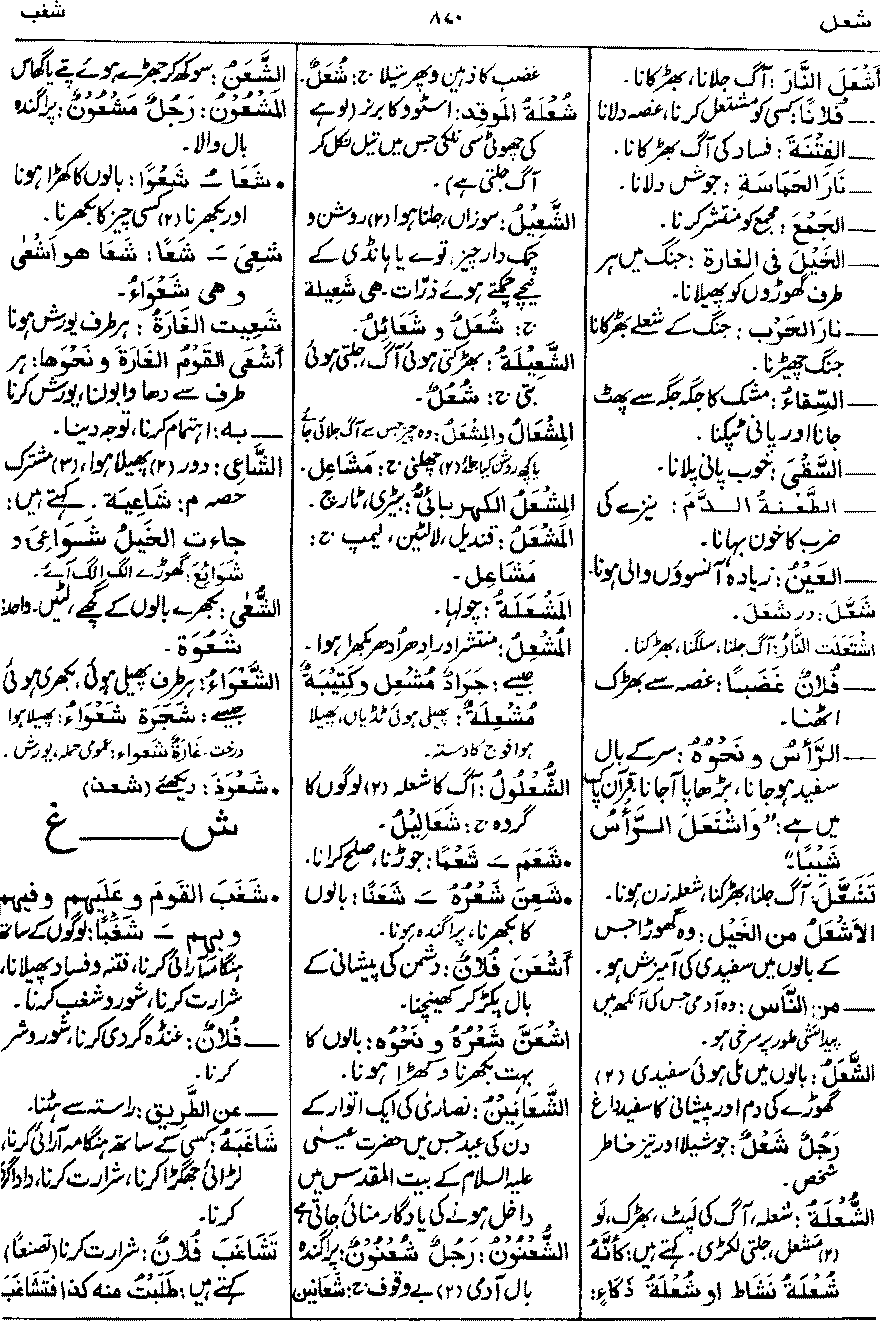 شعل
۸۷۰
شغب
أشعَلَ النَّارَ: آگ جلانا، بھڑکانا۔
— فُلَانًا: کسی کو مشتعل کرنا، غصہ دلانا
— الفِتْنَةَ: فساد کی آگ بھڑکانا۔
— نارَ الحَمَاسَةِ: جوش دلانا۔
— الجَمْعَ: مجمع کو منتشر کرنا۔
— الخَيْلَ فی الغارة: جنگ میں ہر
طرف گھوڑوں کو پھیلانا۔
— نارَ الحَرْب: جنگ کے شعلے بھڑکانا
جنگ چھیڑنا۔
— السِّقاءُ: مشک کا جگہ جگہ سے پھٹ
جانا اور پانی ٹپکنا۔
— السَّقْیَ: خوب پانی پلانا۔
— الطَّعْنةُ الدَّمَ: نیزے کی
ضرب کا خون بہانا۔
— العَيْنُ: زیادہ آنسوؤں والی ہونا۔
شَعَّلَ: در شَعَلَ۔
اشْتَعَلَت النَّارُ: آگ جلنا، سلگنا، بھڑکنا۔
— فُلَانٌ غَضَبًا: غصہ سے بھڑک
اٹھنا۔
— الرَّأْسُ و نَحْوُهُ: سر کے بال
سفید ہو جانا، بڑھاپا آجانا، قرآن پاک
میں ہے: "وَاشْتَعَلَ الرَّأْسُ
شَيْبًا"
تَشَعَّلَ: آگ جلنا، بھڑکنا، شعلہ زن ہونا۔
الأشعَلُ من الخَيْل: وہ گھوڑا جس
کے بالوں میں سفیدی کی آمیزش ہو۔
— من النَّاس: وہ آدمی جس کی آنکھ میں
پیدائشی طور پر سرخی ہو۔
الشَّعَلُ: بالوں میں ملی ہوئی سفیدی (۲)
گھوڑے کی دم اور پیشانی کا سفید داغ
رَجُلٌ شَعْلٌ: جوشیلا اور تیز خاطر
شخص۔
الشُّعْلَةُ: شعلہ، آگ کی لپٹ، بھڑک، لو
(۲) مشعل، جلتی لکڑی۔ کہتے ہیں: کَأَنَّهُ
شُعْلَةُ نَشَاط او شُعْلَةُ ذَكَاءٍ:
غضب کا ذہین و پھرتیلا ج: شُعَلٌ۔
شُعْلَةُ المَوقِد: اسٹوو کا برنر (لوہے
کی چھوٹی سی نلکی جس میں تیل نکل کر
آگ جلتی ہے)۔
الشَّعِيْلُ: سوزاں، جلتا ہوا (۲) روشن و
چمک دار چیز، توے یا ہانڈی کے
نیچے چمکتے ہوئے ذرّات۔ هی شَعِيلة
ج: شُعُلٌ و شَعَائِلُ۔
الشَّعِيْلَةُ: بھڑکتی ہوئی آگ، جلتی ہوئی
بتی ج: شُعُلٌ۔
المِشْعَالُ والمِشْعَلُ: وہ چیز جس سے آگ جلائی جائے
یا کچھ روشن کیا جائے (۲) چھلنی ج: مَشَاعِل۔
المِشْعَلُ الكهربائیُّ: بیٹری، ٹارچ۔
المَشْعَلُ: قندیل، لالٹین، لیمپ ج:
مَشَاعِل۔
المَشْعَلَةُ: چولہا۔
المُشْعِلُ: منتشر اور ادھر اُدھر بکھرا ہوا۔
جیسے: جَرَادٌ مُشْعِل و كَتِيْبَةٌ
مُشْعِلَةٌ: پھیلی ہوئی ٹڈیاں، پھیلا
ہوا فوج کا دستہ۔
الشُّعْلُولُ: آگ کا شعلہ (۲) لوگوں کا
گروہ ج: شَعَالِيْلُ۔
• شَعَمَ ـَ شَعْمًا: جوڑنا، صلح کرانا۔
• شَعِنَ شَعْرُهُ ـَ شَعَنًا: بالوں
کا بکھرنا، پراگندہ ہونا۔
أشعَنَ فُلَانٌ: دشمن کی پیشانی کے
بال پکڑ کر کھینچنا۔
اشْعَنَّ شَعْرُهُ و نَحْوُه: بالوں کا
بہت بکھرنا و کھڑا ہونا۔
الشَّعَانِيْنُ: نصاریٰ کی ایک اتوار کے
دن کی عید جس میں حضرت عیسیٰ
علیہ السلام کے بیت المقدس میں
داخل ہونے کی یادگار منائی جاتی ہے
الشُّعْنُونُ: رَجُلٌ شُعْنُونٌ: پراگندہ
بال آدمی (۲) بے وقوف ج: شَعَانِين
الشَّعَنُ: سوکھ کر جھڑے ہوئے پتے یا گھاس
المَشْعُوْنُ: رَجُلٌ مَشْعُوْنٌ: پراگندہ
بال والا۔
• شَعَا ـُ شَعْوًا: بالوں کا کھڑا ہونا
اور بکھرنا (۲) کسی چیز کا بکھرنا۔
شَعِیَ ـَ شَعًا: شَعَا هو أَشْعٰی
و هی شَعْوَاءُ۔
شَعِيت الغَارَةُ: ہر طرف یورش ہونا
أشْعَى القَوْمُ الغَارَةَ و نَحْوَها: ہر
طرف سے دھاوا بولنا، یورش کرنا
— به: اہتمام کرنا، توجہ دینا۔
الشَّاعِی: دور (۲) پھیلا ہوا، (۳) مشترک
حصہ م: شَاعِيَة۔ کہتے ہیں:
جاءت الخَيْلُ شَوَاعِیَ و
شَوَائِعَ: گھوڑے الگ الگ آئے۔
الشُّعٰی: بکھرے بالوں کے گچھے، لٹیں۔ واحد:
شَعْوَة۔
الشَّعْوَاءُ: ہر طرف پھیلی ہوئی، بکھری ہوئی
جیسے: شَجَرَة شَعْوَاءُ: پھیلا ہوا
درخت۔ غَارَةٌ شَعْواء: عمومی حملہ، یورش۔
• شَعْوَذَ: دیکھئے (شعذ)
ش——غ
• شَغَبَ القَومَ و عَلَيهِم و فيهم
و بهم ـَ شَغْبًا: لوگوں کے ساتھ
ہنگامہ آرائی کرنا، فتنہ و فساد پھیلانا،
شرارت کرنا، شور و شغب کرنا۔
— فُلَانٌ: غنڈہ گردی کرنا، شور و شر
کرنا۔
— عن الطَّرِيق: راستہ سے ہٹنا۔
شَاغَبَهُ: کسی کے ساتھ ہنگامہ آرائی کرنا،
لڑائی جھگڑا کرنا، شرارت کرنا، داداگری
کرنا۔
تَشَاغَبَ فُلَانٌ: شرارت کرنا (تصنعًا)
کہتے ہیں: طَلَبْتُ منه كذا فتَشَاغَبَ